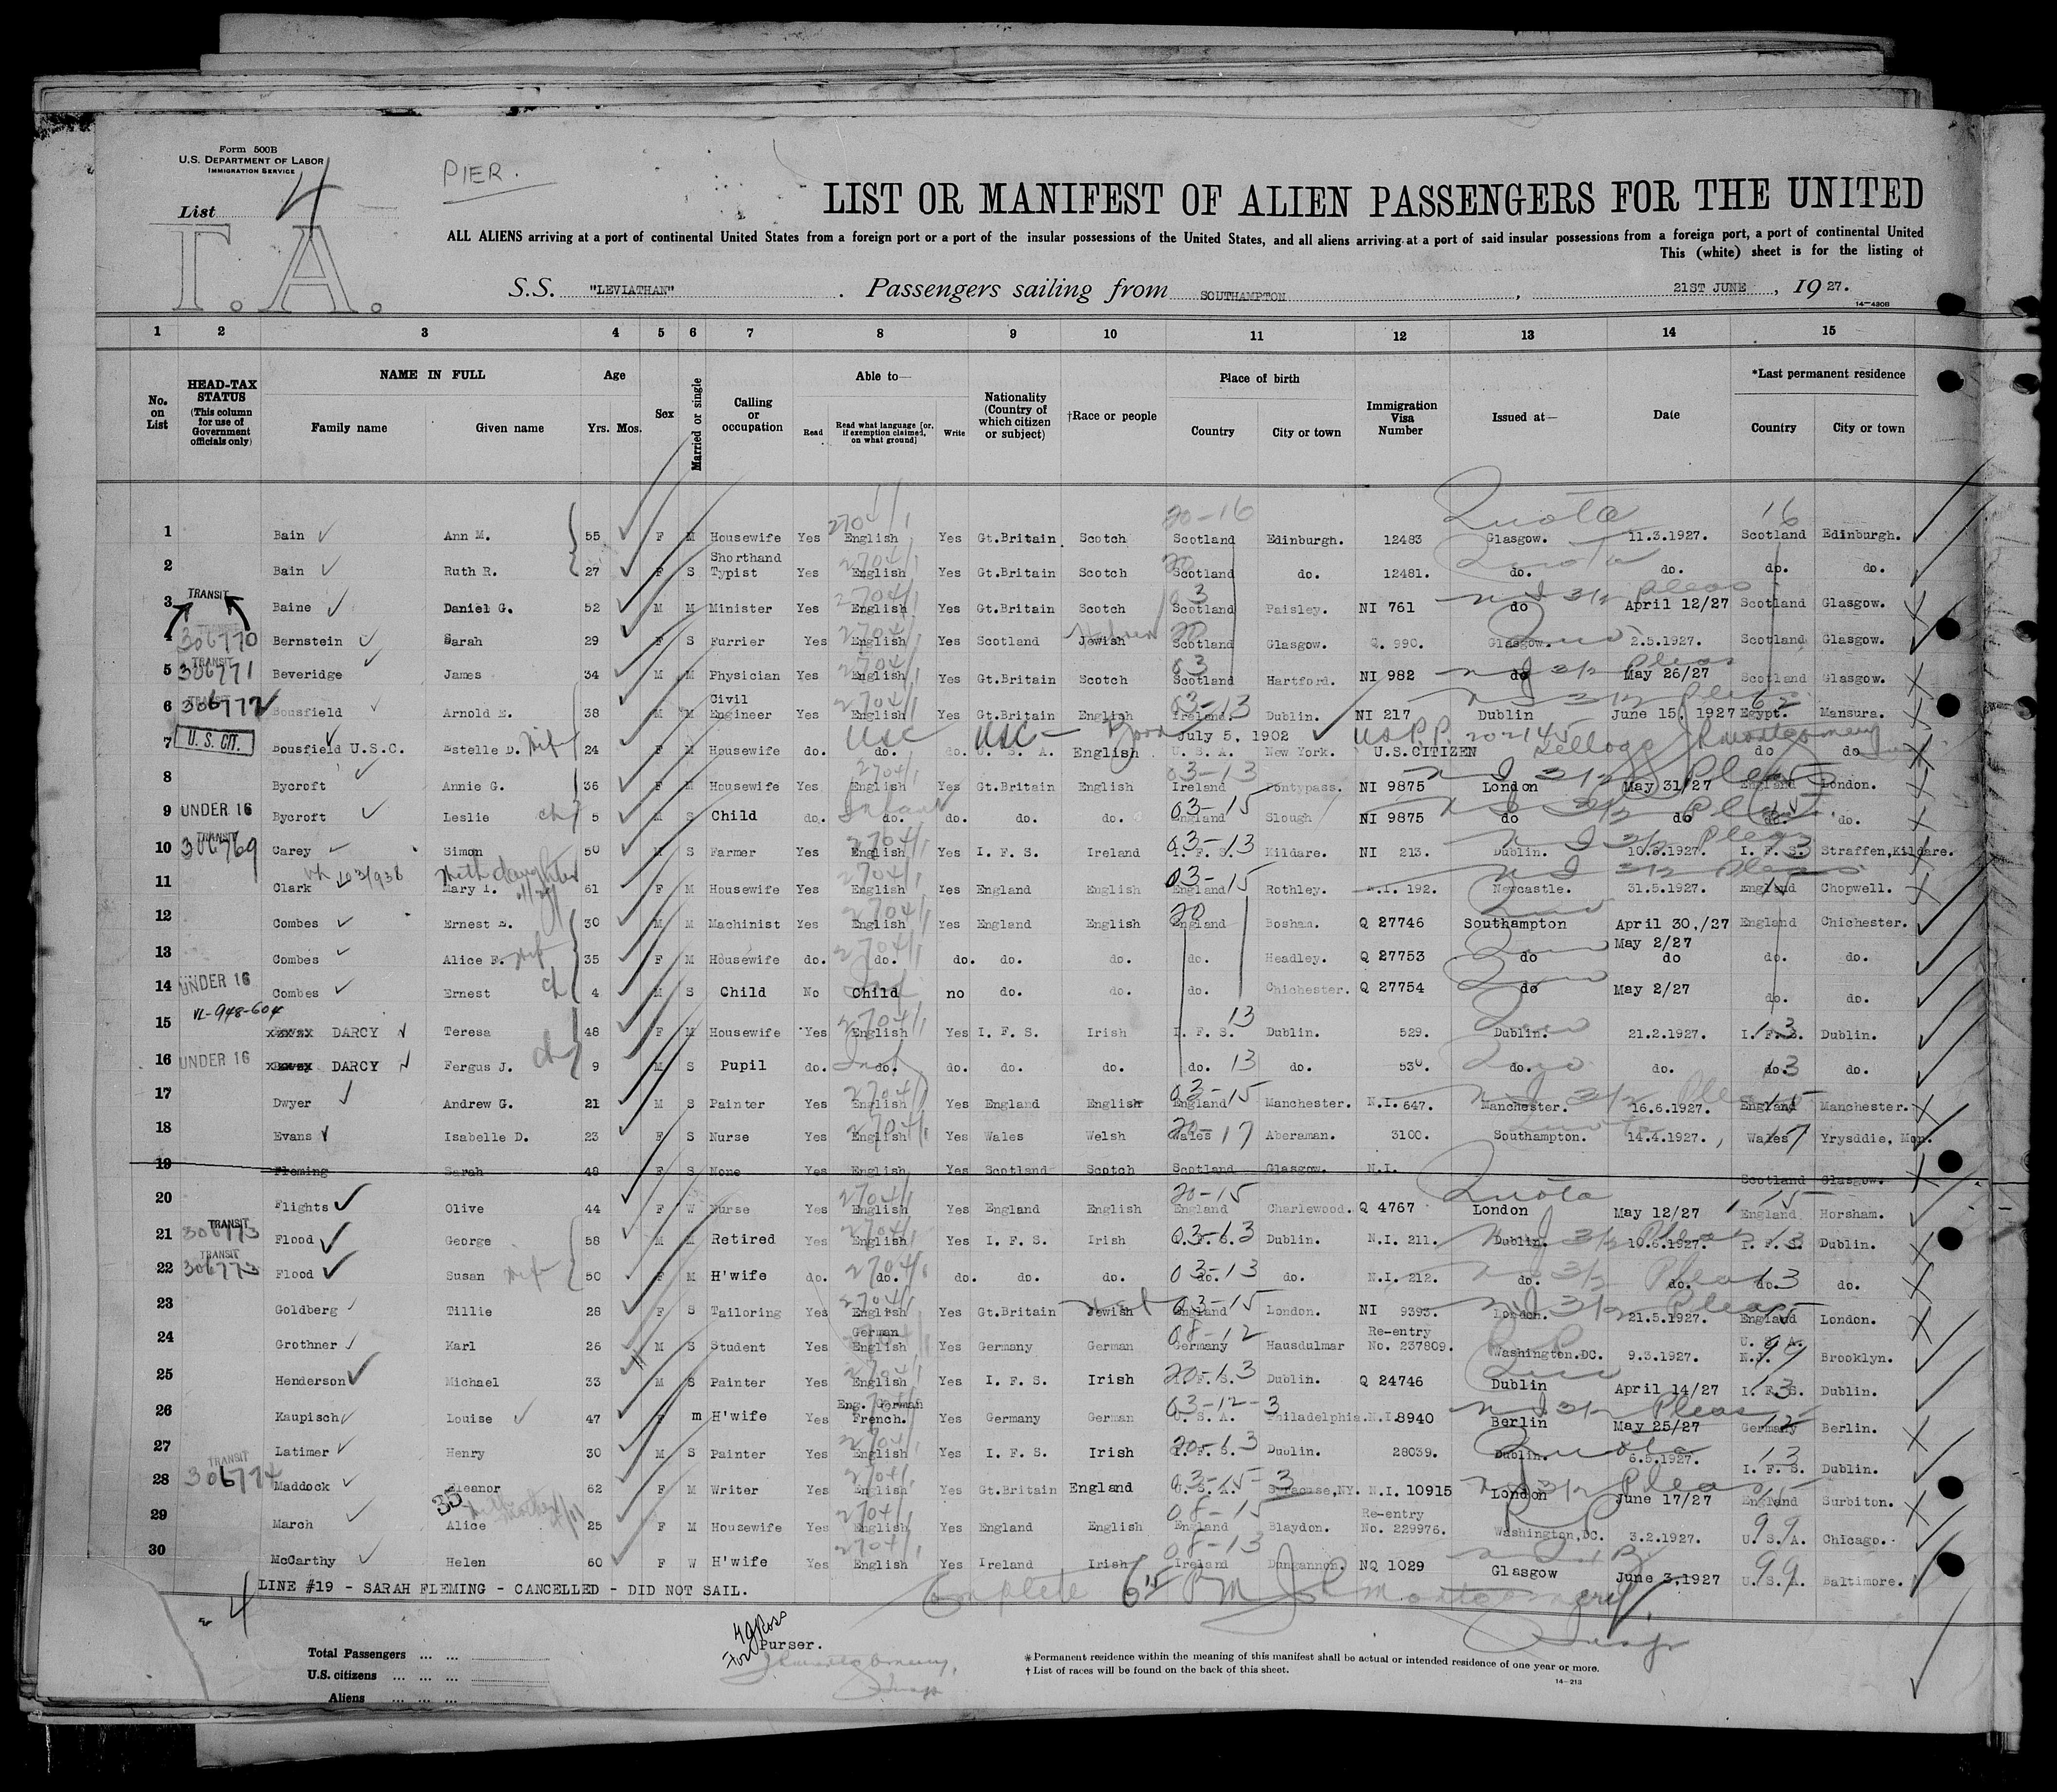 Form 500B
U.S. DEPARTMENT OF LABOR
IMMIGRATION SERVICE
PIER.
List 4
T. A.
LIST OR MANIFEST OF ALIEN PASSENGERS FOR THE UNITED
ALL ALIENS arriving at a port of continental United States from a foreign port or a port of the insular possessions of the United States, and all aliens arriving at a port of said insular possessions from a foreign port, a port of continental United
This (white) sheet is for the listing of
S.S. "LEVIATHAN" . Passengers sailing from SOUTHAMPTON , 21ST JUNE , 19 27.
14-430B
1 2 3 4 5 6 7 8 9 10 11 12 13 14 15
No. on List
HEAD-TAX STATUS (This column for use of Government officials only)
NAME IN FULL
Family name Given name
Age
Yrs. Mos.
Sex
Married or single
Calling or occupation
Able to—
Read Read what language [or, if exemption claimed, on what ground] Write
Nationality (Country of which citizen or subject)
†Race or people
Place of birth
Country City or town
Immigration Visa Number
Issued at—
Date
*Last permanent residence
Country City or town
1 Bain Ann M. 55 F M Housewife Yes English 2704/1 Yes Gt.Britain Scotch 20-16 Scotland Edinburgh. 12483 Quota Glasgow. 11.3.1927. 16 Scotland Edinburgh.
2 Bain Ruth R. 27 F S Shorthand Typist Yes English 2704/1 Yes Gt.Britain Scotch 20 Scotland do. 12481. Quota do. do. do. do.
3 TRANSIT Baine Daniel G. 52 M M Minister Yes English 2704/1 Yes Gt.Britain Scotch 03 Scotland Paisley. NI 761 do NI 3 1/2 Pleas April 12/27 Scotland Glasgow.
4 306770 Bernstein Sarah 29 F S Furrier Yes English 2704/1 Yes Scotland Jewish Hebrew 20 Scotland Glasgow. Q. 990. Glasgow. Quo 2.5.1927. Scotland Glasgow.
5 TRANSIT 306771 Beveridge James 34 M M Physician Yes English 2704/1 Yes Gt.Britain Scotch 03 Scotland Hartford. NI 982 do NI 3 1/2 Pleas May 26/27 Scotland Glasgow.
6 TRANSIT 306772 Bousfield Arnold E. 38 M M Civil Engineer Yes English 2704/1 Yes Gt.Britain English 03-13 Ireland. Dublin. NI 217 Dublin NI 3 1/2 Pleas June 15, 1927 Egypt. Mansura.
7 U. S. CIT. Bousfield U.S.C. Estelle D. Wife 24 F M Housewife do. do. USC do. USC U. S. A. English Born July 5, 1902 U. S. A. New York. USPP. 202145 U.S.CITIZEN Kellogg JRMontgomery Insp do do
8 Bycroft Annie G. 36 F M Housewife Yes English 2704/1 Yes Gt.Britain English 03-13 Ireland Pontypass. NI 9875 London NI 3 1/2 Pleas May 31/27 15 England London.
9 UNDER 16 Bycroft Leslie ch 5 M S Child do. do. Infant do. do. do. 03-15 England Slough NI 9875 do NI 3 1/2 Pleas do 15 do. do.
10 TRANSIT 306769 Carey Simon 50 M S Farmer Yes English 2704/1 Yes I. F. S. Ireland 03-13 I. F. S. Kildare. NI 213. Dublin. NI 3 1/2 Pleas 10.6.1927. I. F. S. 13 Straffen,Kildare.
11 Clark Mary I. With daughter 61 F M Housewife Yes English 2704/1 Yes England English 03-15 England Rothley. N.I. 192. Newcastle. NI 3 1/2 Pleas 31.5.1927. 15 England Chopwell.
12 Combes Ernest E. 30 M M Machinist Yes English 2704/1 Yes England English 20 England Bosham. Q 27746 Southampton Quo April 30,/27 England Chichester.
13 Combes Alice F. Wife 35 F M Housewife do. do. 2704/1 do. do. do. do. Headley. Q 27753 do Quo May 2/27 do do. do.
14 UNDER 16 Combes Ernest ch 4 M S Child No Child Inf no do. do. do. Chichester. Q 27754 do Quo May 2/27 do. do.
VL-948-604
15 DARCY Teresa 48 F M Housewife Yes English 2704/1 Yes I. F. S. Irish 13 I. F. S. Dublin. 529. Dublin. Quo 21.2.1927. I. F. S. 13 Dublin.
16 UNDER 16 DARCY Fergus J. ch 9 M S Pupil do. do. Inf do. do. do. do. 13 do. 530. do. Quo do. do. 13 do.
17 Dwyer Andrew G. 21 M S Painter Yes English 2704/1 Yes England English 03-15 England Manchester. N.I. 647. Manchester. NI 3 1/2 Pleas 16.6.1927. England 15 Manchester.
18 Evans Isabelle D. 23 F S Nurse Yes English 2704/1 Yes Wales Welsh 20-17 Wales Aberaman. 3100. Southampton. Quota 14.4.1927. Wales 17 Yrysddie, Mon.
19 Fleming Sarah 49 F S None Yes English Yes Scotland Scotch Scotland Glasgow. N.I. Scotland Glasgow.
20 Flights Olive 44 F W Nurse Yes English 2704/1 Yes England English 20-15 England Charlewood. Q 4767 Quota London May 12/27 15 England Horsham.
21 TRANSIT 306773 Flood George 58 M M Retired Yes English 2704/1 Yes I. F. S. Irish 03-13 I. F. S. Dublin. N.I. 211. Dublin. NI 3 1/2 Pleas 10.6.1927. I. F. S. 13 Dublin.
22 TRANSIT 306773 Flood Susan Wife 50 F M H'wife do. do. 2704/1 do. do. do. 03-13 do. do. N.I. 212. do. NI 3 1/2 Pleas do. do. 13 do.
23 Goldberg Tillie 28 F S Tailoring Yes English 2704/1 Yes Gt.Britain Jewish Heb 03-15 England London. NI 9393. London. NI 3 1/2 Pleas 21.5.1927. England 15 London.
24 Grothner Karl 26 M S Student Yes German English 2704/1 Yes Germany German 08-12 Germany Hausdulmar Re-entry No. 237809. RP Washington.DC. 9.3.1927. U. S. A. N.Y. 99 Brooklyn.
25 Henderson Michael 33 M S Painter Yes English 2704/1 Yes I. F. S. Irish 20-13 I. F. S. Dublin. Q 24746 Quo Dublin April 14/27 I. F. S. 13 Dublin.
26 Kaupisch Louise 47 F m H'wife Yes Eng. German French. 2704/1 Yes Germany German 03-12-3 U. S. A. Philadelphia. N.I. 8940 NI 3 1/2 Pleas Berlin May 25/27 12 Germany Berlin.
27 Latimer Henry 30 M S Painter Yes English 2704/1 Yes I. F. S. Irish 20-13 I. F. S. Dublin. 28039. Dublin. Quota 6.5.1927. 13 I. F. S. Dublin.
28 TRANSIT 306774 Maddock Eleanor 62 F M Writer Yes English 2704/1 Yes Gt.Britain England 03-15-3 U. S. A. Syracuse,NY. N.I. 10915 London NI 3 1/2 Pleas June 17/27 15 England Surbiton.
29 March 35 Alice 25 F M Housewife Yes English 2704/1 Yes England English 08-15 England Blaydon. Re-entry No. 229976. RP Washington,DC. 3.2.1927. 99 U. S. A. Chicago.
30 McCarthy Helen 60 F W H'wife Yes English 2704/1 Yes Ireland Irish 08-13 Ireland Dungannon. NQ 1029 Glasgow June 3,1927 99 U. S. A. Baltimore.
LINE #19 - SARAH FLEMING - CANCELLED - DID NOT SAIL.
Complete 6 15 PM JRMontgomery Insp
4
For
Purser.
JRMontgomery, Insp
Total Passengers ... ...
U.S. citizens ... ... ...
Aliens ... ... ...
* Permanent residence within the meaning of this manifest shall be actual or intended residence of one year or more.
† List of races will be found on the back of this sheet.
14-213